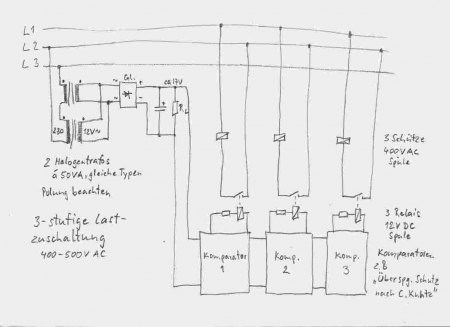 L1
L2
L3
Gl.
≈17V
RL
230
12V~
2 Halogentrafos
á 50VA, gleiche Typen
Polung beachten
3-stufige Last-
zuschaltung
400-500V AC
3 Schütze
400VAC
Spule
3 Relais
12V DC
Spule
Komparator
1
Komp.
2
Komp.
3
Komparatoren
z.B
"Überspg. Schutz
nach C. Kuhtz"